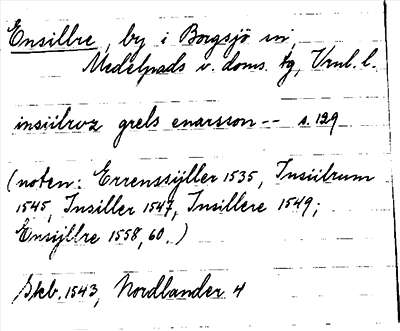 Ensillre, by i Borgsjö sn,
Medelpads v. doms. tg, Vrnl. l.
insiilrvz grels enarsson -- s. 129
(noten: Errenssÿller 1535, Insiilrum
1545, Insiller 1547, Insillere 1549;
Ensÿllre 1558, 60.)
Skb. 1543, Nordlander 4